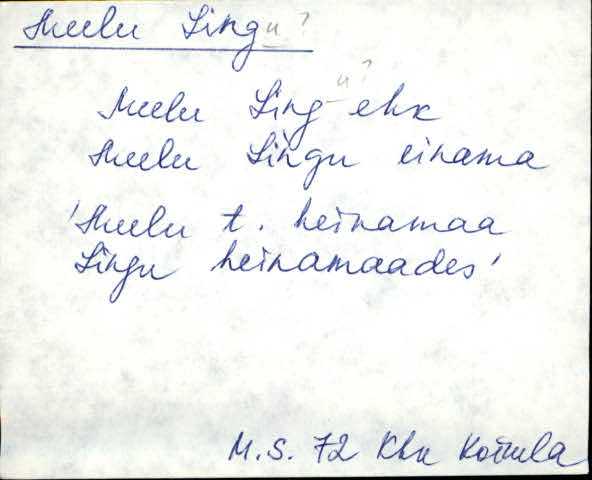 Meelu Lingu?
u?
Meelu Ling ehk
Meelu Lingu einama
'Meelu t. heinamaa
Lingu heinamaades'
M.S. 72 Khk Koimla